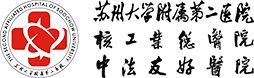 THE SECOND AFFILIATED HOSPITAL OF SOOCHOW UNIVERSITY
苏州大学附属第二医院
核工业总醫院
中法友好醫院